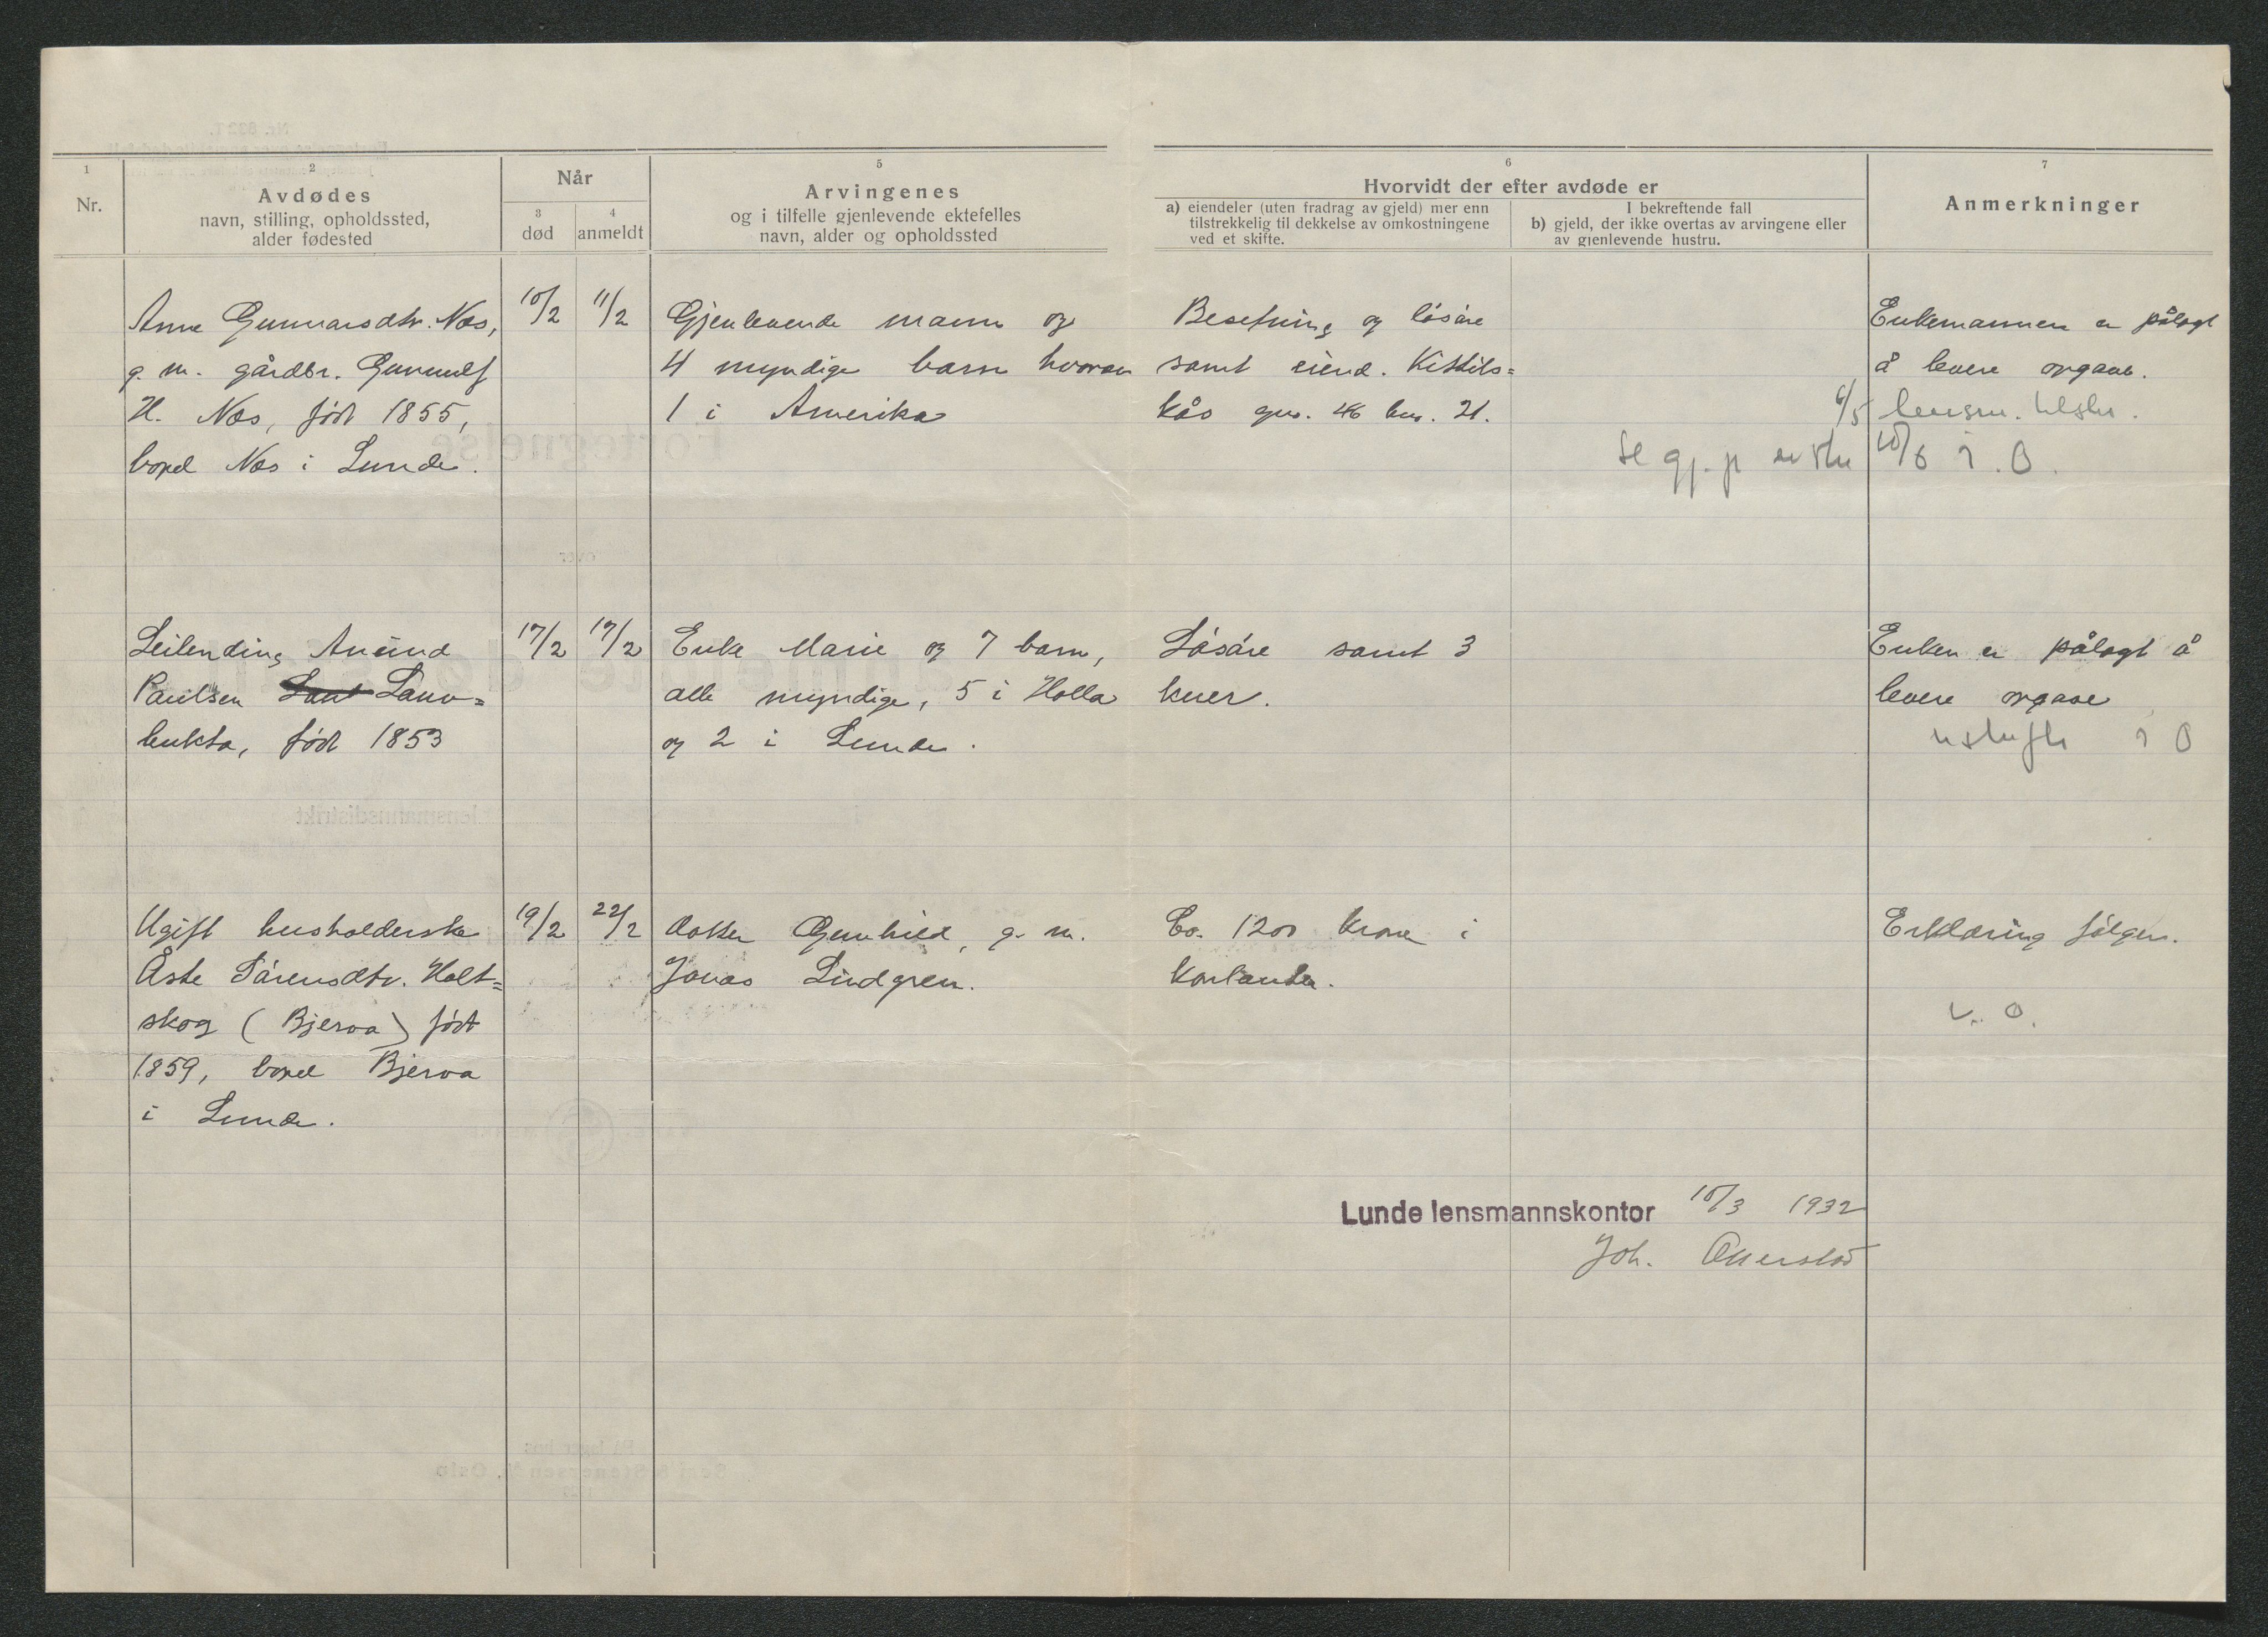 1
2
Avdødes
navn, stilling, opholdssted,
alder fødested
Nr.
Når
3
død
4
anmeldt
5
Arvingenes
og i tilfelle gjenlevende ektefelles
navn, alder og opholdssted
6
Hvorvidt der efter avdøde er
a) eiendeler (uten fradrag av gjeld) mer enn
tilstrekkelig til dekkelse av omkostningene
ved et skifte.
I bekreftende fall
b) gjeld, der ikke overtas av arvingene eller
av gjenlevende hustru.
7
Anmerkninger
Anne Gunnarsdtr. Næs,
g. m. gårdbr. Gunnulf
H. Næs, født 1855,
bopel Næs i Lunde.
10/2
11/2
Gjenlevende mann og
4 myndige barn hvorav
1 i Amerika
Besetning og løsøre
samt eiend. Kittils=
kås gnr. 46 bnr. 21.
Enkemannen er pålagt
å levere opgave.
6/5 lensm.
Se gj. p
10/6 O.
Leilending Anund
Paulsen Lanv=
bukta, født 1853
17/2
19/2
Enke Marie og 7 barn,
alle myndige, 5 i Holla
og 2 i Lunde.
Løsøre samt 3
kuer.
Enken er pålagt å
levere opgave
O
Ugift husholderske
Åste Sørensdtr. Holt=
skog (Bjerva) født
1859, bopel Bjerva
i Lunde.
19/2
22/2
datter Gunhild, g. m.
Jonas Lindgren.
Co. 1200 krone i
kontanter.
Erklæring følger.
v. O.
Lunde lensmannskontor 10/3 1932
Joh.